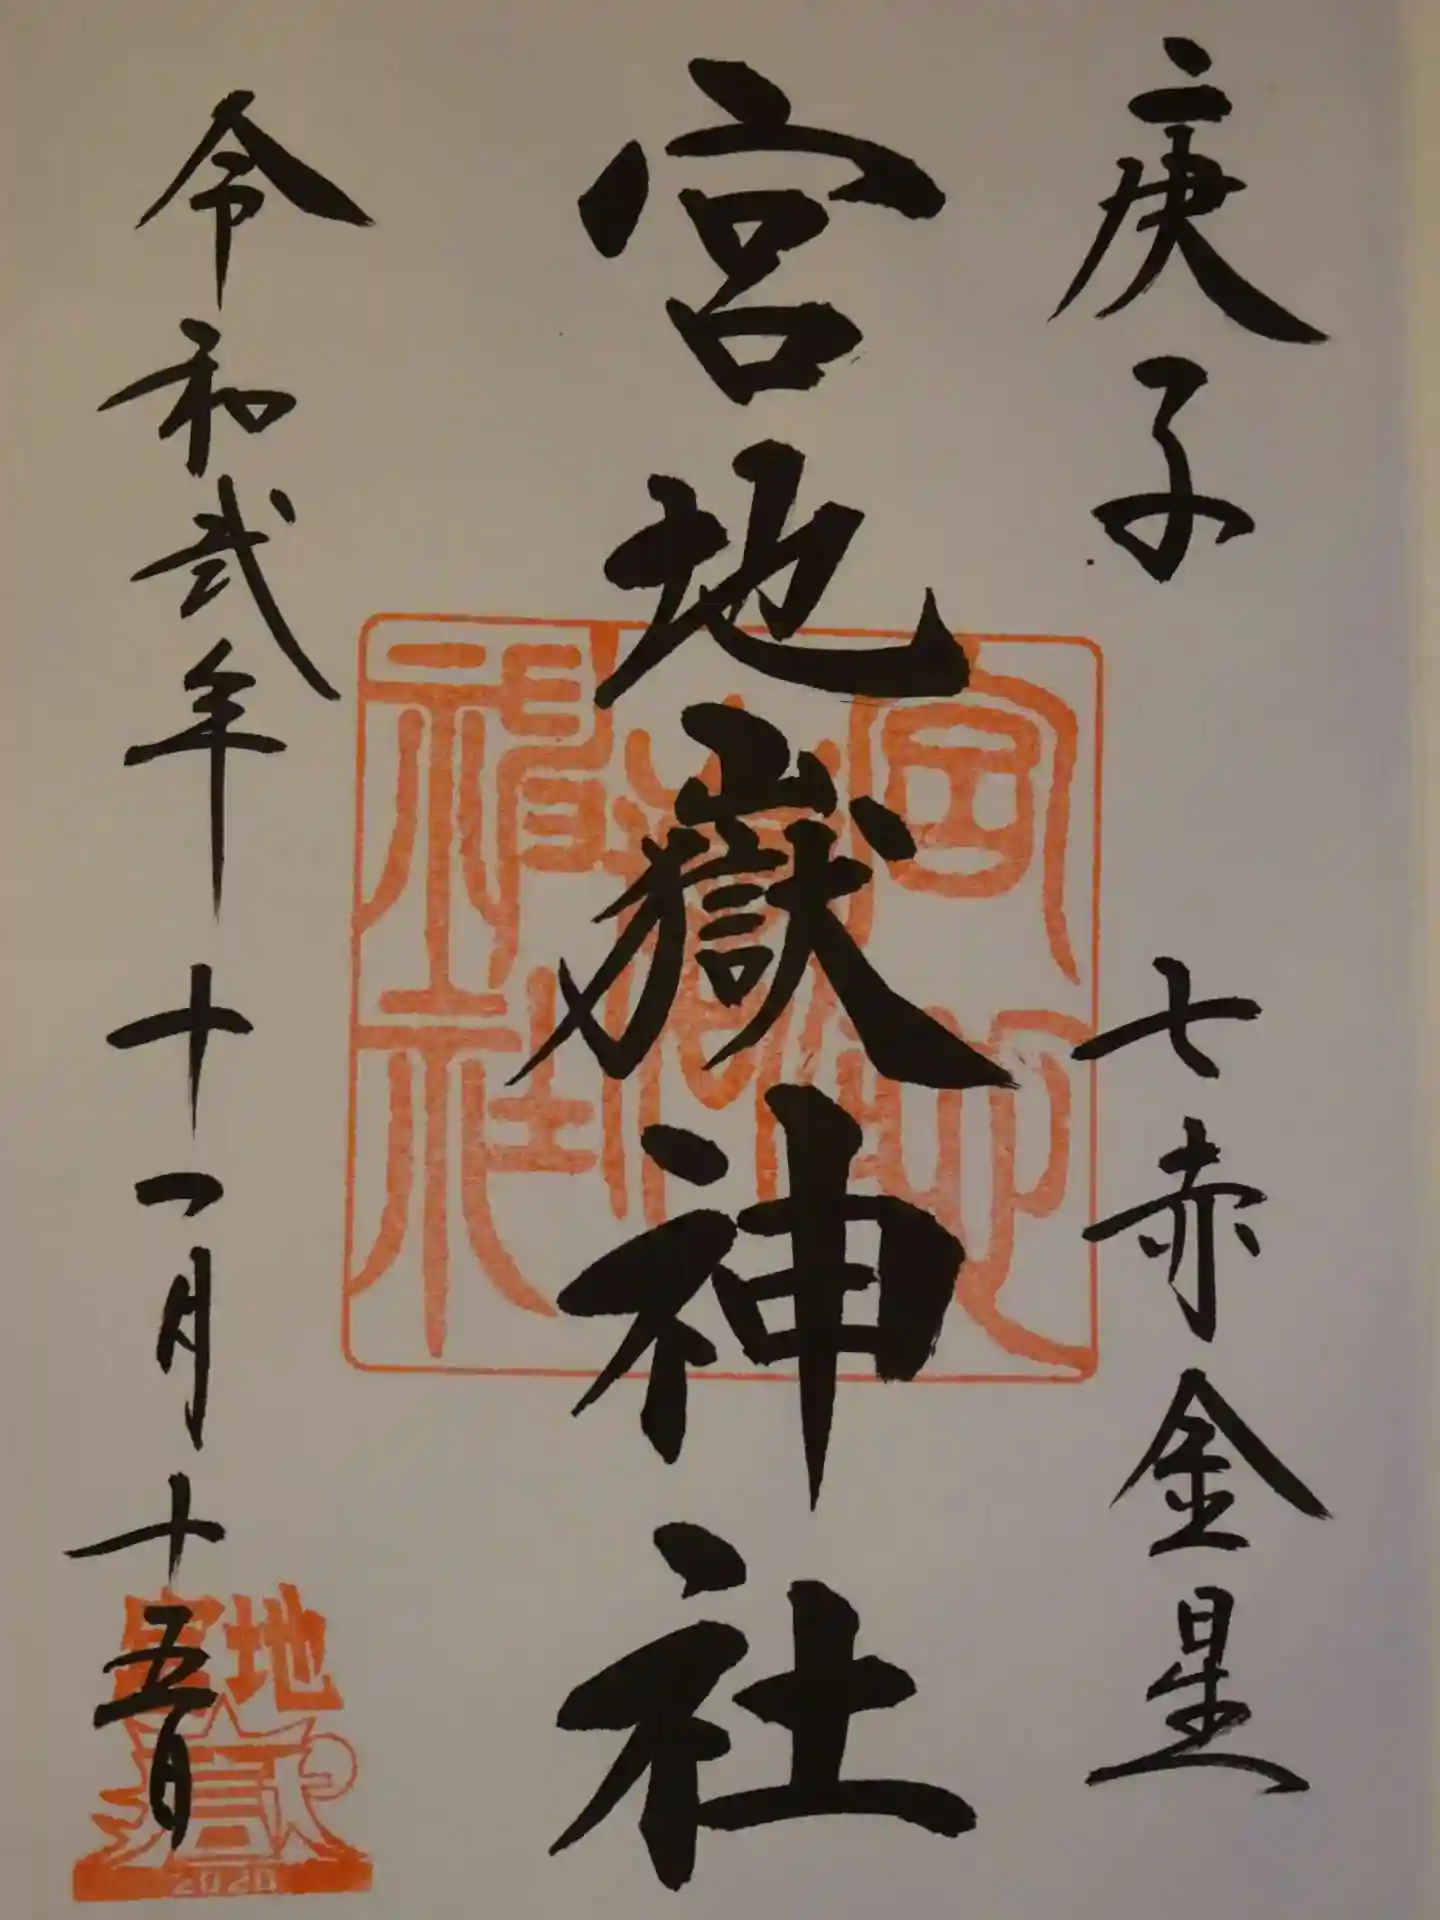 庚子 七赤金星
宮地嶽神社
令和弐年 十一月十五日
宮地嶽神社
宮地
嶽
2020